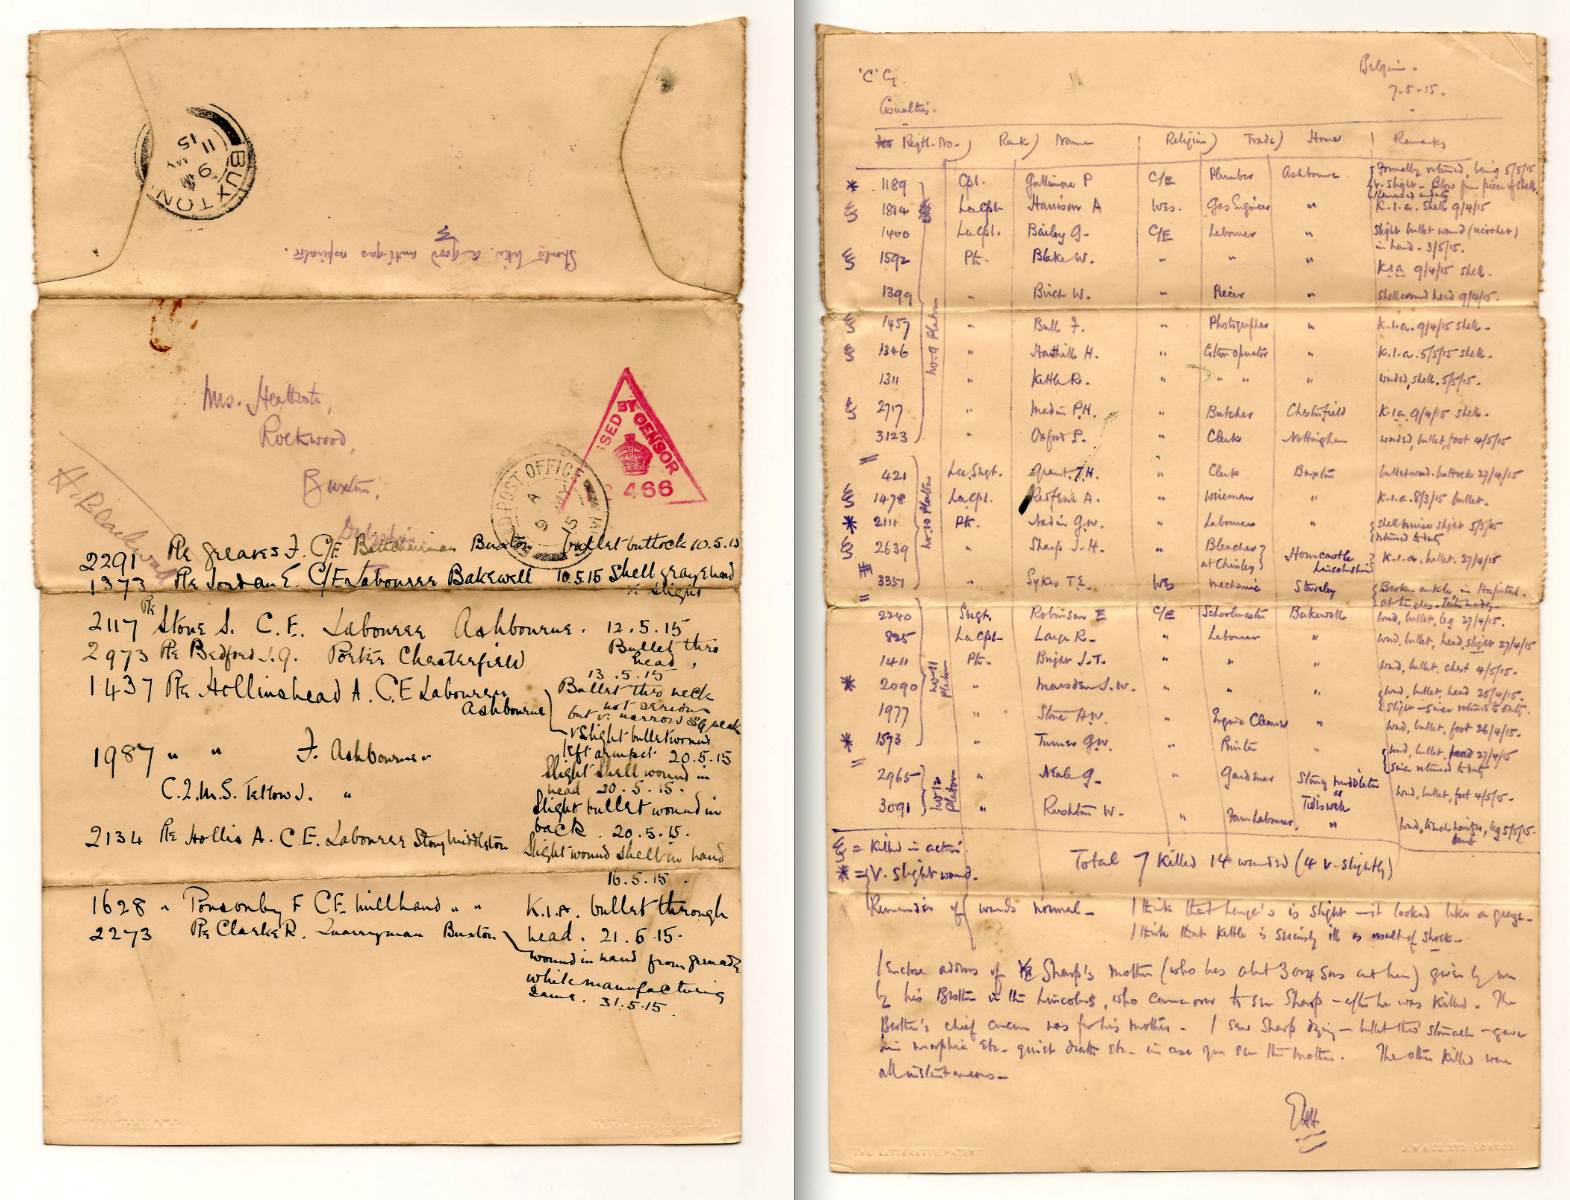 BUXTON
9 AM
11 MY
15
Should like a good anti-gas respirator.
Mrs. Heathcote,
Rockwood,
Buxton,
Derbyshire
PASSED BY CENSOR
466
POST OFFICE
A
9 MY
15
H. Blackwall
2291 Pte Greaves F. C/E Buxton bullet buttock 10.5.15
1373 Pte Jordan E. C/E Labourer Bakewell 10.5.15 Shell graze hand
v. slight
2117 Pte Stone S. C.E. Labourer Ashbourne. 12.5.15
Bullet thro
head.
2973 Pte Bedford J.G. Porter Chesterfield
13.5.15
1437 Pte Hollinshead A. C.E Labourer
Ashbourne
Bullet thro neck
not serious
but v. narrow squeak
1987 " " F. Ashbourne "
v slight bullet wound
left armpit. 20.5.15
C.Q.M.S. Tellow J. "
Slight shell wound in
head 20.5.15.
Slight bullet wound in
back. 20.5.15.
2134 Pte Hollis A. C.E. Labourer Stony Middleton Slight wound shell in hand
16.5.15.
1628 " Ponsonby F CE Millhand " " K.I.A. bullet through
head. 21.6.15.
2273 Pte Clarke R. Quarryman Buxton
wound in hand from grenade
while manufacturing
same. 31.5.15.
'C' Cy
Belgium.
7-5-15.
Casualties.
Regtl. No. Rank Name Religion Trade Home Remarks
* 1189 Cpl. Gallimore P C/E Plumber Ashbourne returned, being 5/5/15
v. slight - Blow from piece of shell.
1814 La Cpl. Harrison A Wes. Gas Engineer " K.I.A. Shell 9/4/15
1400 La Cpl. Bailey G. C/E Labourer " Slight bullet wound (ricochet)
in hand - 3/5/15.
1592 Pte. Blake W. " " " K.I.A. 9/4/15 shell.
1399 " Birch W. " " Shell wound head 9/4/15.
No. 9 Platoon
1457 " Bull F. " Photographer " K.I.A. 9/4/15 shell.
1346 " Harthill H. " operator " K.I.A. 5/5/15 shell.
1311 " Kettle R. " " " " wounded, shell. 5/5/15.
2717 " Madin P.H. " Butcher Chesterfield K.I.A. 9/4/15 shell.
3123 " Oxford S. " Clerk Nottingham wounded, bullet, foot 4/5/15
421 Lce Sergt. Grant J.H. " Clerk Buxton bullet wound buttocks 27/4/15
1478 La Cpl. Redfern A. " Wireman " K.I.A. 8/3/15 bullet.
No. 10 Platoon
* 2111 Pte. Nadin G.W. " Labourer " Shell bruise slight 5/5/15
returned to duty
2639 " Sharp J.H. " Bleacher
at Chinley Horncastle
Lincolnshire K.I.A. bullet. 27/4/15
3351 " Sykes T.E. Wes mechanic Staveley Broken ankle, in Hospital.
2240 Sergt. Robinson E C/E Schoolmaster Bakewell wound, bullet, leg 27/4/15.
825 La Cpl. Large R. " Labourer " wound, bullet, head, slight 27/4/15
1411 Pte. Bright J.T. " " " wound, bullet, chest 4/5/15.
No. 11 Platoon
* 2090 " Marsden J.W. " " " wound, bullet, head 25/4/15.
slight - since returned to duty.
1977 " Stone A.W. " Engine Cleaner " wound, bullet, foot 26/4/15.
* 1573 " Turner G.W. " Printer " wound, bullet, head 27/4/15
since returned to duty
2965 " Neale G. " Gardener Stony Middleton wound, bullet, foot 4/5/15.
No. 12 Platoon
3091 " Rushton W. " Farm Labourer, Tideswell " leg 5/5/15.
= Killed in action.
* = V. slight wound.
Total 7 Killed 14 wounded (4 v. slightly)
Remainder of wounds normal - I think that Large's is slight - it looked like a graze -
I think that Kettle is seriously ill as result of shock -
I enclose address of Sharp's mother (who has abt 3 or 4 sons out here) given by me
by his Brother in the Lincolns, who came over to see Sharp - after he was killed. The
Brother's chief concern was for his mother. I saw Sharp dying - bullet thro' stomach - gave
him morphia etc - quiet death etc - in case you see the mother. The other killed were
all instantaneous -
THE LETTERETTE PATENT